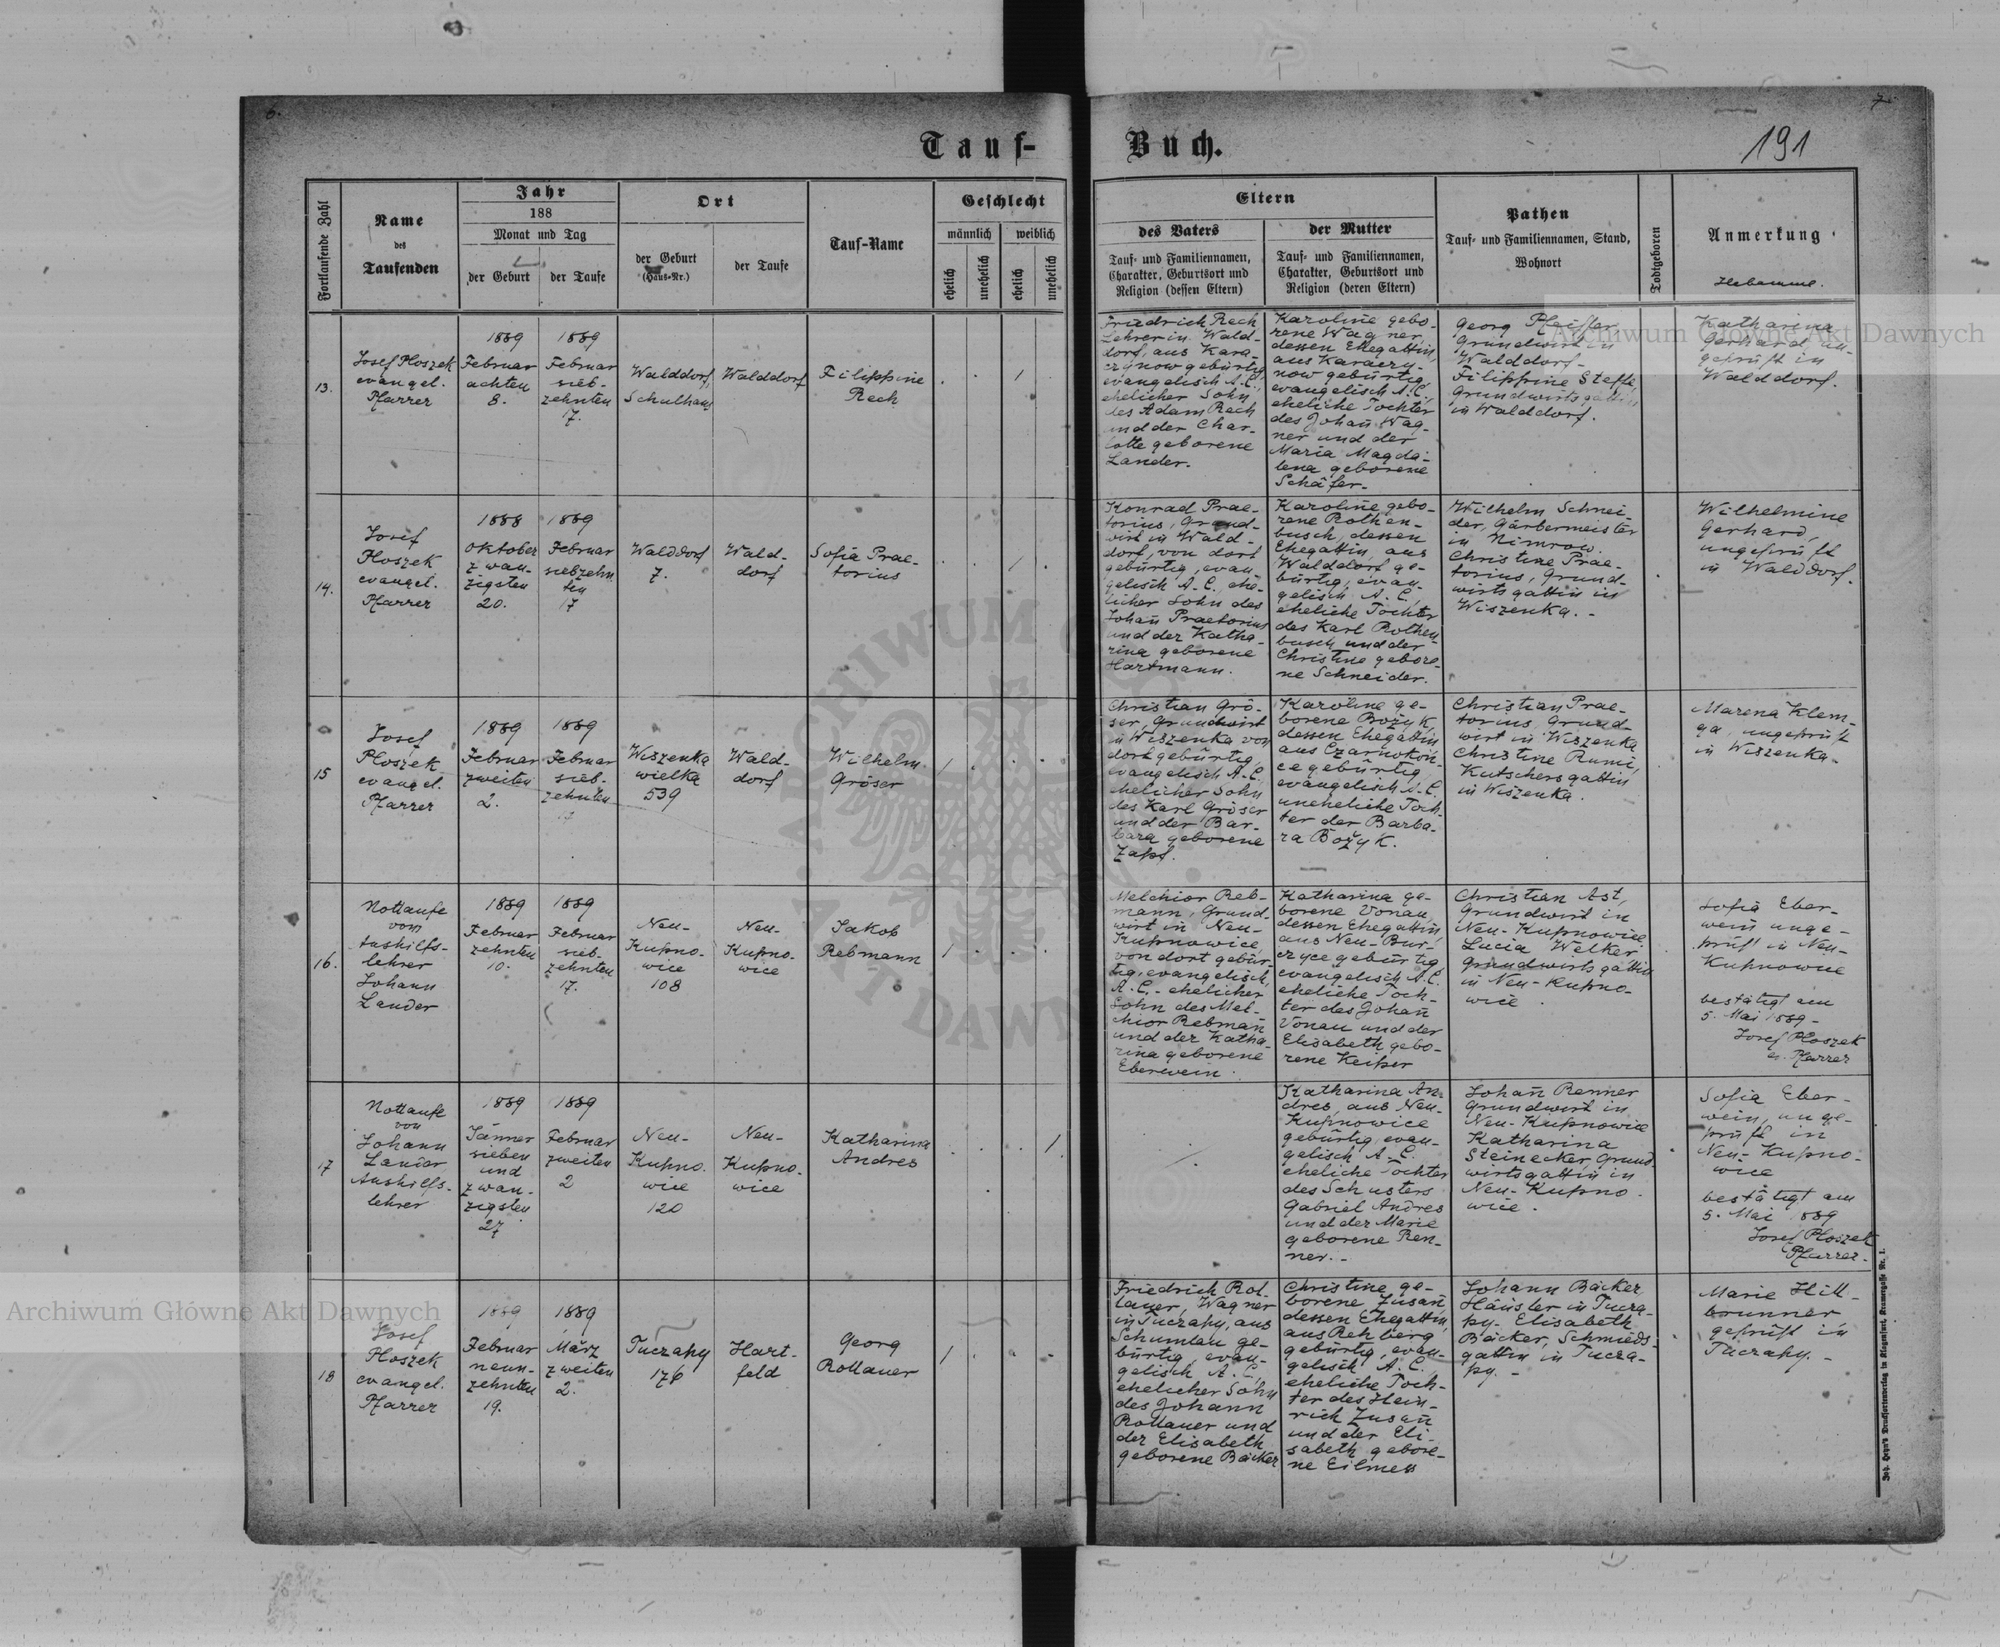 6.
7.
Tauf-
Buch.
191
Fortlaufende Zahl
Name
des
Taufenden
Jahr
188
Monat und Tag
der Geburt
der Taufe
Ort
der Geburt
(Haus-Nr.)
der Taufe
Tauf-Name
Geschlecht
männlich
weiblich
ehelich
unehelich
ehelich
unehelich
Eltern
des Vaters
Tauf- und Familiennamen,
Charakter, Geburtsort und
Religion (dessen Eltern)
der Mutter
Tauf- und Familiennamen,
Charakter, Geburtsort und
Religion (deren Eltern)
Pathen
Tauf- und Familiennamen, Stand,
Wohnort
Todtgeboren
Anmerkung
Hebamme.
13.
Josef Ploszek
evangel.
Pfarrer
1889
Februar
achten
8.
1889
Februar
sieb-
zehnten
17.
Walddorf
Schulhaus
Walddorf
Filippine
Rech
1
Friedrich Rech
Lehrer in Wald-
dorf, aus Kara-
czynow gebürtig,
evangelisch A.C.,
ehelicher Sohn
des Adam Rech
und der Char-
lotte geborene
Lander.
Karoline gebo-
rene Wagner,
dessen Ehegattin,
aus Karaczy-
now gebürtig,
evangelisch A.C.,
eheliche Tochter
des Johañ Wag-
ner und der
Maria Magda-
lena geborene
Schäfer.
Georg Pfeiffer
Grundwirt in
Walddorf-
Filippine Steffe,
Grundwirtsgattin
in Walddorf.
Katharina
Gerhard, un-
geprüft in
Walddorf.
14.
Josef
Ploszek
evangel.
Pfarrer
1888
Oktober
zwan-
zigsten
20.
1889
Februar
siebzehn
ten
17
Walddorf
7.
Wald-
dorf
Sofia Prae-
torius
1
Konrad Prae-
torius, Grund-
wirt in Wald-
dorf, von dort
gebürtig, evan-
gelisch A.C., ehe-
licher Sohn des
Johañ Praetorius
und der Katha-
rina geborene
Hartmann.
Karoline gebo-
rene Rothen-
busch, dessen
Ehegattin, aus
Walddorf ge-
bürtig, evan-
gelisch A.C.,
eheliche Tochter
des Karl Rothen
busch und der
Christine gebore-
ne Schneider.
Wilhelm Schnei-
der, Gärbermeister
in Nimrow.
Christine Prae-
torius, Grund-
wirtsgattin in
Wiszenka.-
Wilhelmine
Gerhard,
ungeprüft
in Walddorf.
15
Josef
Ploszek
evangel.
Pfarrer
1889
Februar
zweiten
2.
1889
Februar
sieb-
zehnten
17
Wiszenka
wielka
539
Wald-
dorf
Wilhelm
Gröser
1
Christian Grö-
ser, Grundwirt
in Wiszenka von
dort gebürtig,
evangelisch A.C.
ehelicher Sohn
des Karl Gröser
und der Bar-
bara geborene
Zapf.
Karoline ge-
borene Božyk,
dessen Ehegattin
aus Czarnokoń-
ce gebürtig,
evangelisch A.C.
uneheliche Toch-
ter der Barba-
ra Božyk.
Christian Prae-
torius, Grund-
wirt in Wiszenka
Christine Rumi,
Kutschersgattin
in Wiszenka.
Marena Klem-
ga, ungeprüft
in Wiszenka.
16.
Nottaufe
vom
Aushilfs-
lehrer
Johann
Lander
1889
Februar
zehnten
10.
1889
Februar
sieb-
zehnten
17.
Neu-
Kupno-
wice
108
Neu-
Kupno-
wice
Jakob
Rebmann
1
Melchior Reb-
mann, Grund-
wirt in Neu-
Kupnowice,
von dort gebür-
tig, evangelisch
A.C.- ehelicher
Sohn des Mel-
chior Rebmañ
und der Katha-
rina geborene
Eberwein.
Katharina ge-
borene Vonau,
dessen Ehegattin,
aus Neu-Bur-
czyce gebürtig
evangelisch A.C.
eheliche Toch-
ter des Johañ
Vonau und der
Elisabeth gebo-
rene Keiper
Christian Ast,
Grundwirt in
Neu-Kupnowice
Lucia Welker
Grundwirtsgattin
in Neu-Kupno-
wice.
Sofia Eber-
wein unge-
prüft in Neu-
Kupnowice
bestätigt am
5. Mai 1889-
Josef Ploszek
ev. Pfarrer
17
Nottaufe
von
Johann
Lander
Aushilfs-
lehrer
1889
Jänner
sieben
und
zwan-
zigsten
27
1889
Februar
zweiten
2
Neu-
Kupno-
wice
120
Neu-
Kupno-
wice
Katharina
Andres
1.
Katharina An-
dres, aus Neu-
Kupnowice
gebürtig, evan-
gelisch A.C.
eheliche Tochter
des Schusters
Gabriel Andres
und der Marie
geborene Ren-
ner.-
Johañ Renner
Grundwirt in
Neu-Kupnowice
Katharina
Steinecker, Grund-
wirtsgattin in
Neu-Kupno-
wice.
Sofia Eber-
wein, unge-
prüft in
Neu-Kupno-
wice
bestätigt am
5. Mai 889
Josef Ploszek
Pfarrer.
18
Josef
Ploszek
evangel.
Pfarrer
1889
Februar
neun-
zehnten
19.
1889
März
zweiten
2.
Tuczapy
176
Hart-
feld
Georg
Rollauer
1
Friedrich Rol-
lauer, Wagner
in Tuczapy, aus
Schumlau ge-
bürtig, evan-
gelisch A.C.,
ehelicher Sohn
des Johann
Rollauer und
der Elisabeth
geborene Bäcker
Christine ge-
borene Zusañ,
dessen Ehegattin,
aus Rehberg
gebürtig, evan-
gelisch A.C.
eheliche Toch-
ter des Hein-
rich Zusañ
und der Eli-
sabeth gebore-
ne Eilmes
Johann Bäcker,
Häusler in Tucza-
py- Elisabeth
Bäcker, Schmieds-
gattin in Tucza-
py.-
Marie Hill-
brunner
geprüft in
Tuczapy.-
Joh. Heyn's Drucksortenverlag in Klagenfurt, Kramergasse Nr. 1.
Archiwum Główne Akt Dawnych
Archiwum Główne Akt Dawnych